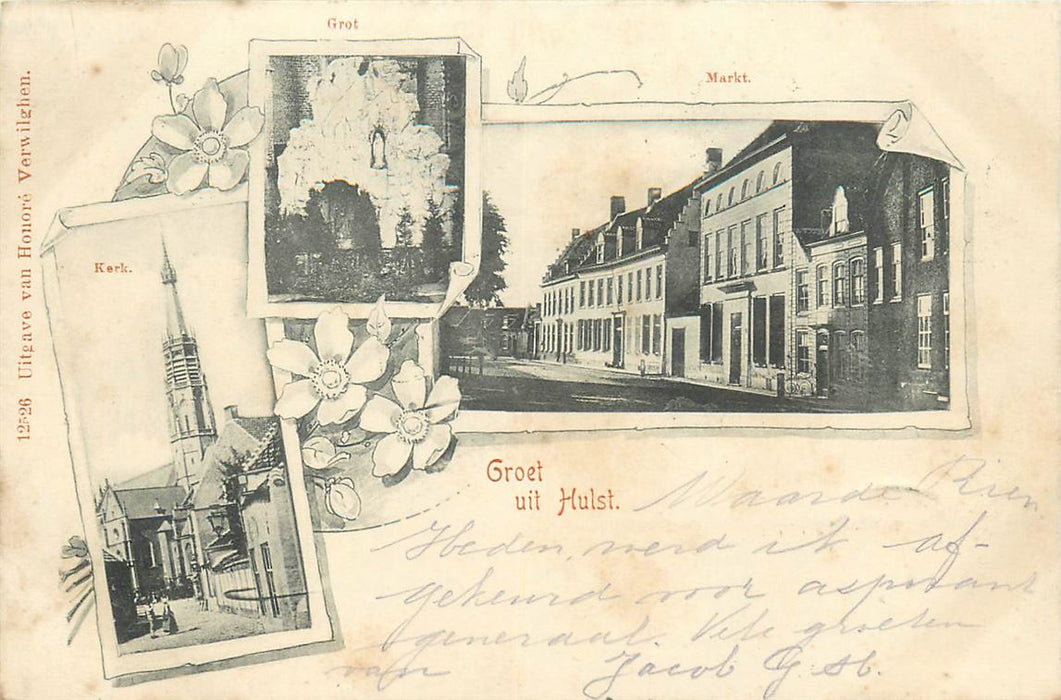 Grot
Markt.
Kerk.
Uitgave van Honoré Verwilghen.
Groet
uit Hulst.
Waarde Rien
Heden werd ik af-
gekeurd voor aspirant
generaal. Vele groeten
van Jacob